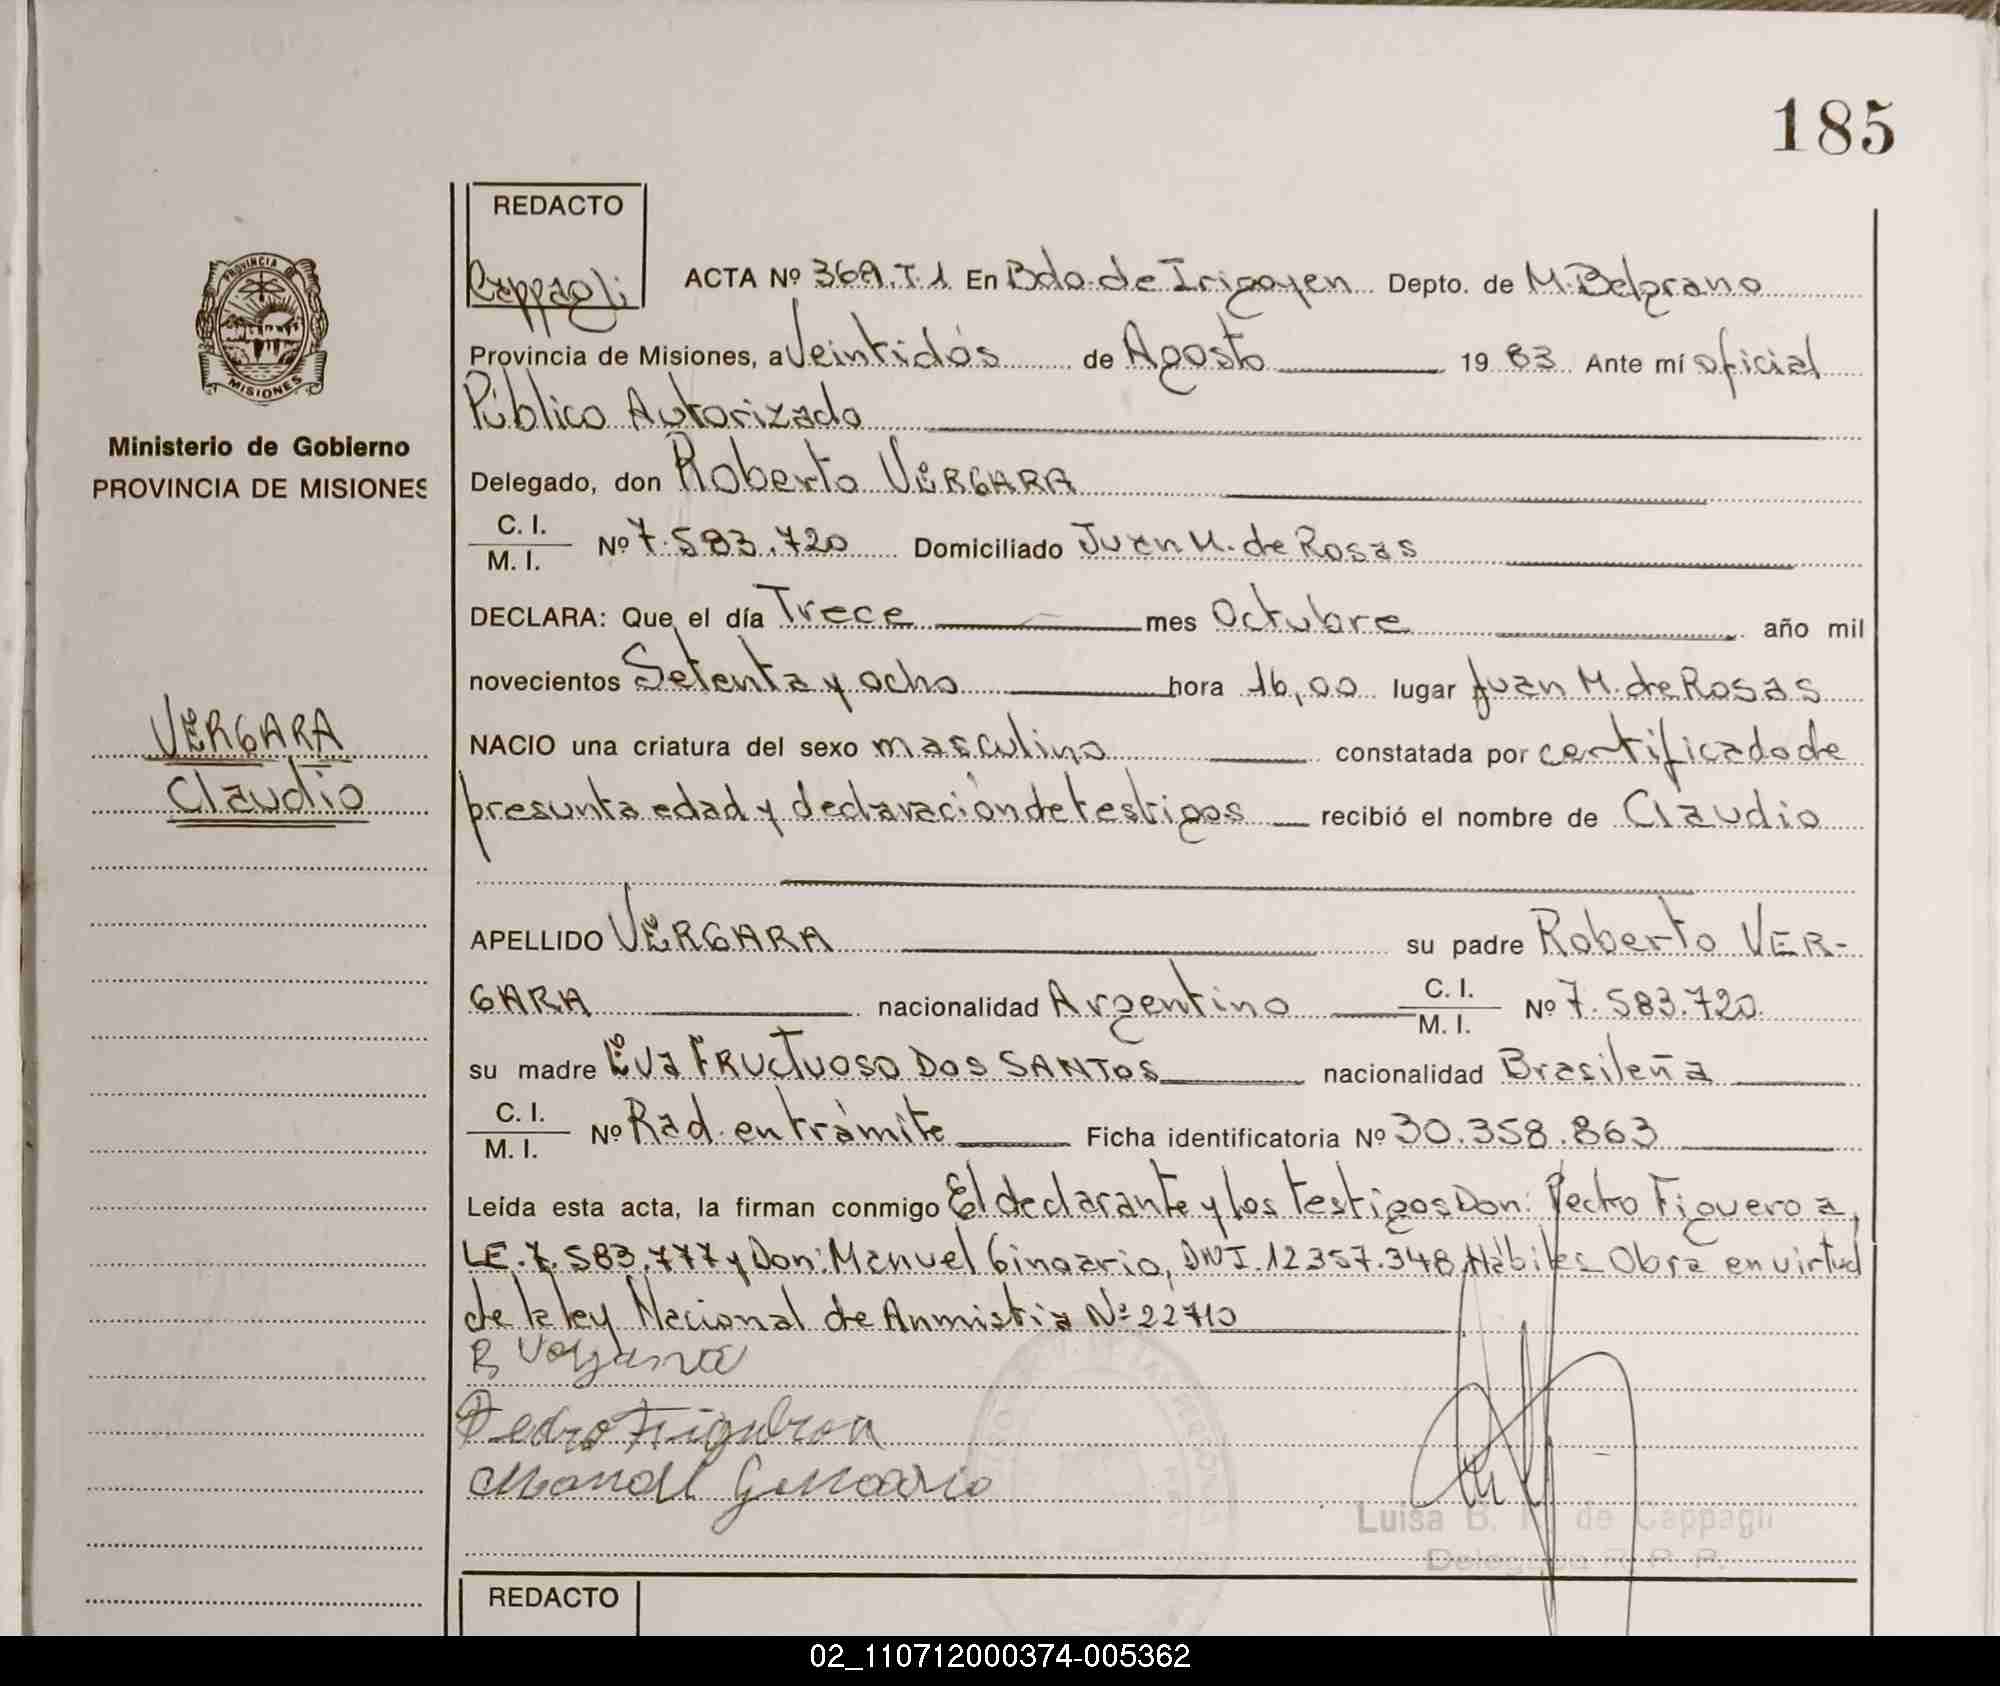 185
REDACTO
Cappagli
ACTA Nº 369.T.1 En Bdo.de Irigoyen Depto. de M.Belgrano
Provincia de Misiones, a Veintidós de Agosto 1983 Ante mí oficial
Público Autorizado
Delegado, don Roberto VERGARA
C. I.
M. I.
Nº 7.583.720 Domiciliado Juan M. de Rosas
DECLARA: Que el día Trece mes Octubre año mil
novecientos Setenta y ocho hora 16,00 lugar Juan M. de Rosas
NACIO una criatura del sexo masculino constatada por certificado de
presunta edad y declaración de testigos recibió el nombre de Claudio
APELLIDO VERGARA su padre Roberto VER-
GARA nacionalidad Argentino C. I.
M. I. Nº 7.583.720
su madre Eva FRUCTUOSO DOS SANTOS nacionalidad Brasileña
C. I.
M. I.
Nº Rad. en trámite Ficha identificatoria Nº 30.358.863
Leída esta acta, la firman conmigo El declarante y los testigos Don: Pedro Figueroa,
LE.7.583.777 y Don: Manuel Ginoario, DNI.12357.348 Hábiles Obra en virtud
de la ley Nacional de Anmistia Nº 22710
R Vergara
Pedro Figueroa
Manuel Genoario
Luisa B. de Cappagli
Delegada R. P. P.
REDACTO
PROVINCIA DE
MISIONES
Ministerio de Gobierno
PROVINCIA DE MISIONES
VERGARA
Claudio
02_110712000374-005362